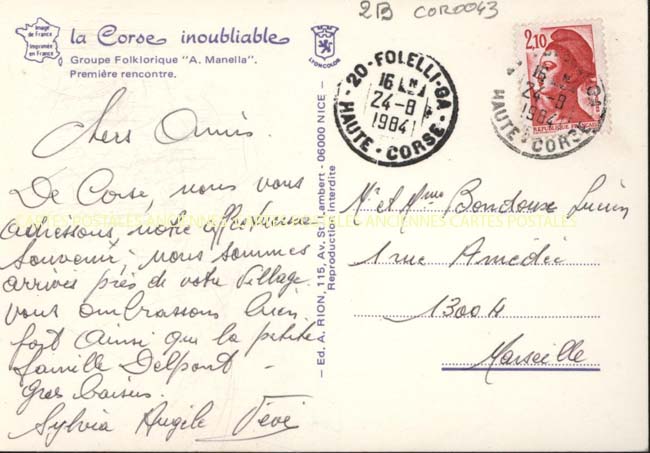 2B COR0043
Image de France
Imprimée en France
la Corse inoubliable
Groupe Folklorique "A. Manella".
Première rencontre.
LYONCOLOR
20-FOLELLI-GA
16 H
24-8
1984
HAUTE-CORSE
2,10
REPUBLIQUE FRANÇAISE
16 H
24-8
1984
HAUTE-CORSE
Chers Amis.
De Corse, nous vous
adressons notre affectueux
Souvenir, nous sommes
arrivés près de votre Village.
vous embrassons bien
fort ainsi que la petite
famille Delpont -
Gros baisers.
Sylvia Angèle Vévé
CARTES POSTALES ANCIENNES CARTES POSTALES ANCIENNES CARTES POSTALES
— Ed. A. RION, 115, Av. St. Lambert - 06000 NICE -
Reproduction Interdite
Mr et Mme Bondoux Lucien
1 rue Amédée
13004
Marseille